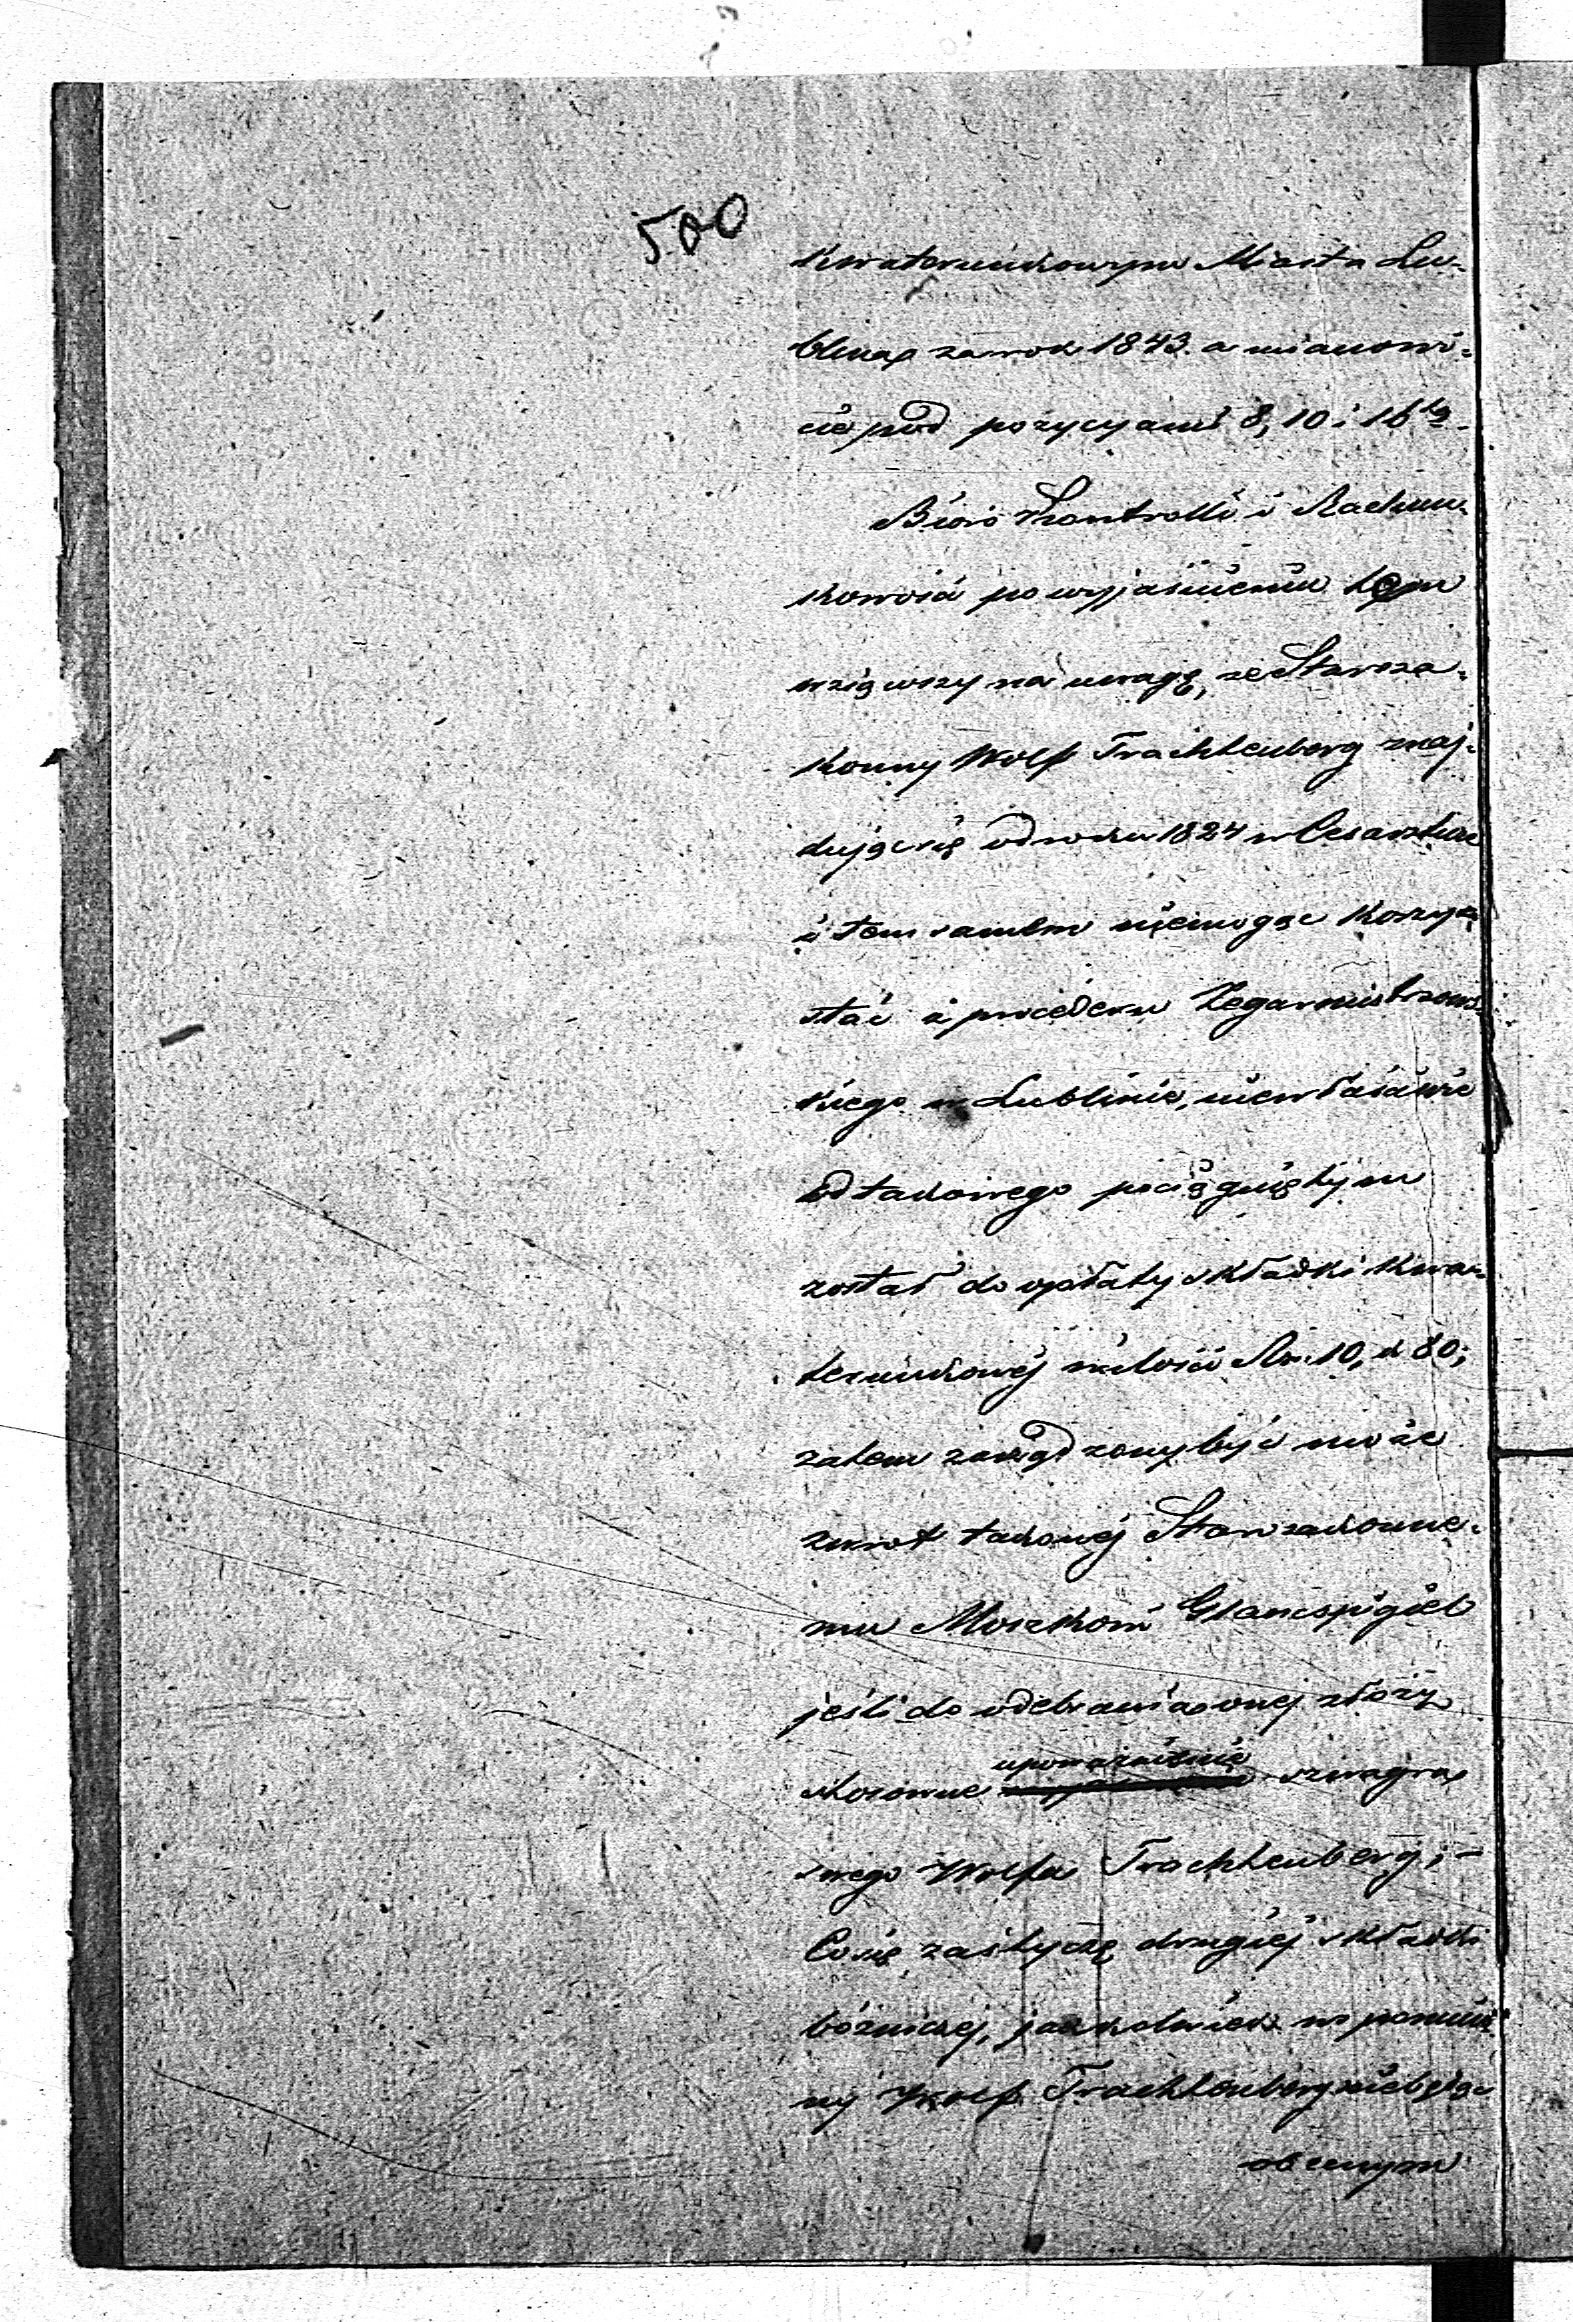 500
Kwaterunkowym Miasta Lu-
blina za rok 1843. a mianowi-
cie pod pozycyami 8, 10 i 16tą.
Bióro Kontrolli i Rachun-
kowości po wyjaśnieniu tem
wziąwszy na uwagę, że Staroza-
konny Wolf Trachtenberg znaj-
dując się od roku 1824 w Cesarstwie
i tem samem niemogąc korzy-
stać z procederu Zegarmistrzows-
kiego w Lublinie, niewłaściwie
od takowego pociągniętym
został do opłaty składki kwa-
terunkowej w ilości Rsr. 10, k 80;
zatem zarządzony być może
zwrot takowej Starozakonne-
mu Moszkowi Glancspigiel
jeśli do odebrania onej złoży
stosowne upoważnienie szwagra
swego Wolfa Trachtenberg;-
Co się zaś tycze drugiej składki
bóżniczej, jakkolwiek wspomnio-
ny Wolf Trachtenberg niebędąc
obecnym